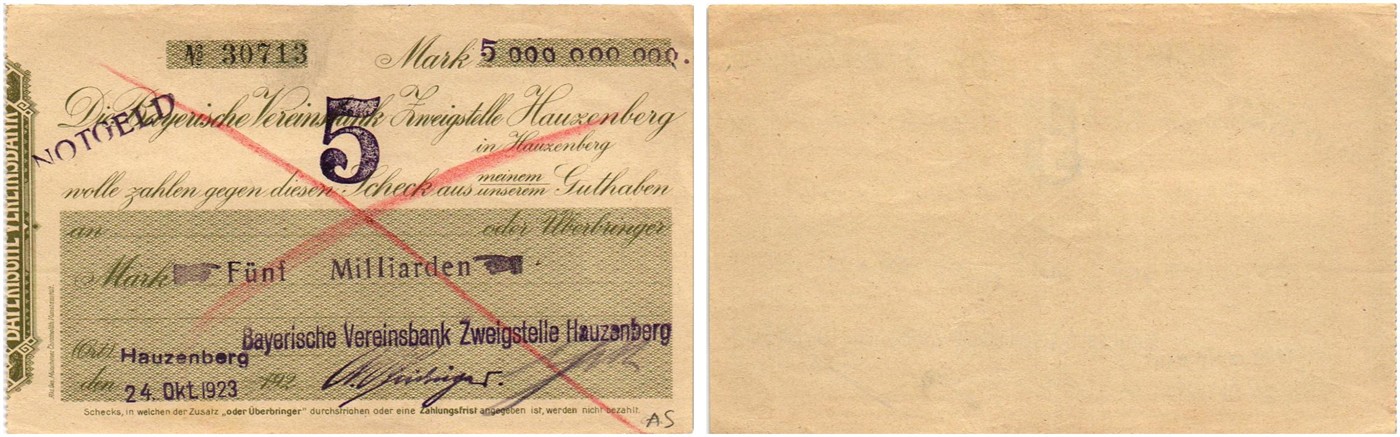 № 30713 Mark 5 000 000 000.
NOTGELD
Die Bayerische Vereinsbank Zweigstelle Hauzenberg
5
in Hauzenberg
wolle zahlen gegen diesen Scheck aus meinem unserem Guthaben
an oder Überbringer
Mark Fünf Milliarden
Bayerische Vereinsbank Zweigstelle Hauzenberg
(Ort) Hauzenberg
den 24. Okt. 1923 192
Schecks, in welchen der Zusatz „oder Überbringer" durchstrichen oder eine Zahlungsfrist angegeben ist, werden nicht bezahlt.
A.S
BAYERISCHE VEREINSBANK